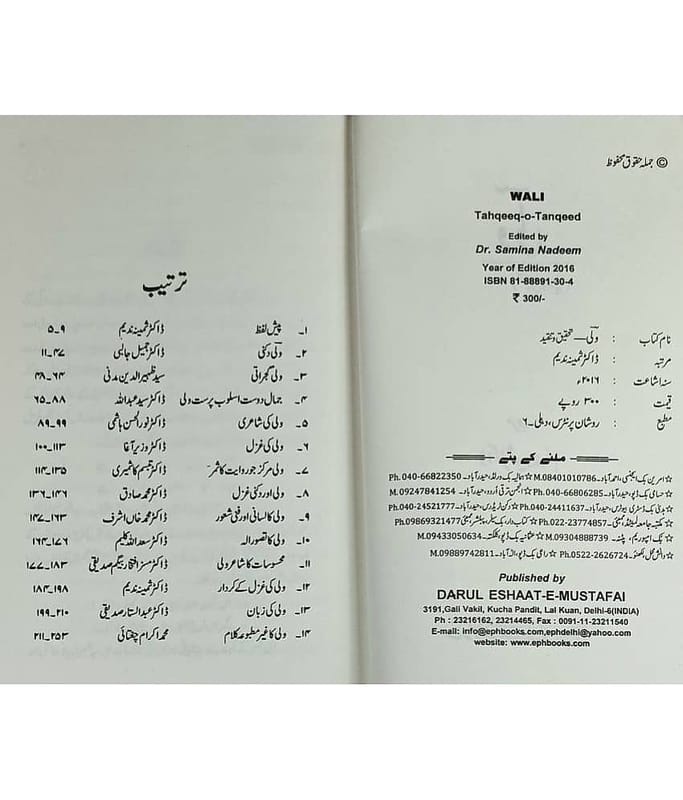 © جملہ حقوق محفوظ
WALI
Tahqeeq-o-Tanqeed
Edited by
Dr. Samina Nadeem
Year of Edition 2016
ISBN 81-88891-30-4
₹ 300/-
نام کتاب : ولی — تحقیق و تنقید
مرتبہ : ڈاکٹر ثمینہ ندیم
سنہ اشاعت : ۲۰۱۶ء
قیمت : ۳۰۰ روپے
مطبع : روشان پرنٹرس، دہلی۔۶
ملنے کے پتے
☆ امرین بک ایجنسی، احمد آباد۔ M.08401010786 ☆ ہمالیہ بک ورلڈ، حیدرآباد۔ Ph.040-66822350
☆ حسامی بک ڈپو، حیدرآباد۔ Ph.040-66806285 ☆ انجمن ترقی اردو، حیدرآباد۔ M.09247841254
☆ ہدیٰ بک ڈسٹری بیوٹرس، حیدرآباد۔ Ph.040-24411637 ☆ دکن ٹریڈرس، حیدرآباد۔ Ph.040-24521777
☆ مکتبہ جامعہ لمیٹڈ، ممبئی۔ Ph.022-23774857 ☆ کتاب دار، بک سیلر، پبلیشر، ممبئی۔ Ph.09869321477
☆ بک امپوریم، پٹنہ۔ M.09304888739 ☆ عثمانیہ بک ڈپو، کلکتہ۔ M.09433050634
☆ دانش محل، لکھنؤ۔ Ph.0522-2626724 ☆ راعی بک ڈپو، الہ آباد۔ M.09889742811
Published by
DARUL ESHAAT-E-MUSTAFAI
3191,Gali Vakil, Kucha Pandit, Lal Kuan, Delhi-6(INDIA)
Ph : 23216162, 23214465, Fax : 0091-11-23211540
E-mail: info@ephbooks.com,ephdelhi@yahoo.com
website: www.ephbooks.com
ترتیب
۱۔ پیش لفظ ڈاکٹر ثمینہ ندیم ۵۔۹
۲۔ ولی دکنی ڈاکٹر جمیل جالبی ۱۱۔۴۷
۳۔ ولی گجراتی سید ظہیر الدین مدنی ۴۸۔۶۴
۴۔ جمال دوست اسلوب پرست ولی ڈاکٹر سید عبداللہ ۶۵۔۸۸
۵۔ ولی کی شاعری ڈاکٹر نور الحسن ہاشمی ۸۹۔۹۹
۶۔ ولی کی غزل ڈاکٹر وزیر آغا ۱۰۰۔۱۱۳
۷۔ ولی مرکز جو روایت کا شمر ڈاکٹر تبسم کاشمیری ۱۱۴۔۱۳۵
۸۔ ولی اور دکنی غزل ڈاکٹر محمد صادق ۱۳۶۔۱۴۶
۹۔ ولی کا لسانی اور فنی شعور ڈاکٹر محمد خاں اشرف ۱۴۷۔۱۶۳
۱۰۔ ولی کا تصور الہ ڈاکٹر سعد اللہ کلیم ۱۶۴۔۱۷۶
۱۱۔ محسوسات کا شاعر ولی ڈاکٹر مسز افتخار بیگم صدیقی ۱۷۷۔۱۸۳
۱۲۔ ولی کی غزل کے کردار ڈاکٹر ثمینہ ندیم ۱۸۴۔۱۹۸
۱۳۔ ولی کی زبان ڈاکٹر عبدالستار صدیقی ۱۹۹۔۲۱۰
۱۴۔ ولی کا غیر مطبوعہ کلام محمد اکرام چغتائی ۲۱۱۔۲۵۳